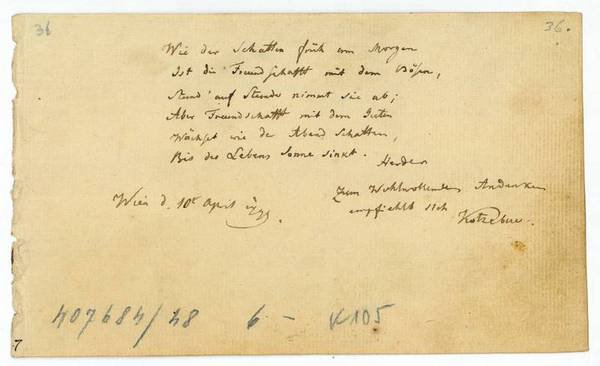 36 36.
Wie der Schatten früh am Morgen
Ist die Freundschafft mit dem Bösen,
Stund' auf Stunde nimmt sie ab;
Aber Freundschafft mit dem Guten
Wächset wie der Abend Schatten,
Bis des Lebens Sonne sinkt.
Herder
Wien d. 10t April
Zum Wohlwollenden Andenken
empfiehlt sich
Kotzebue.
407684/48 6 — 105
7